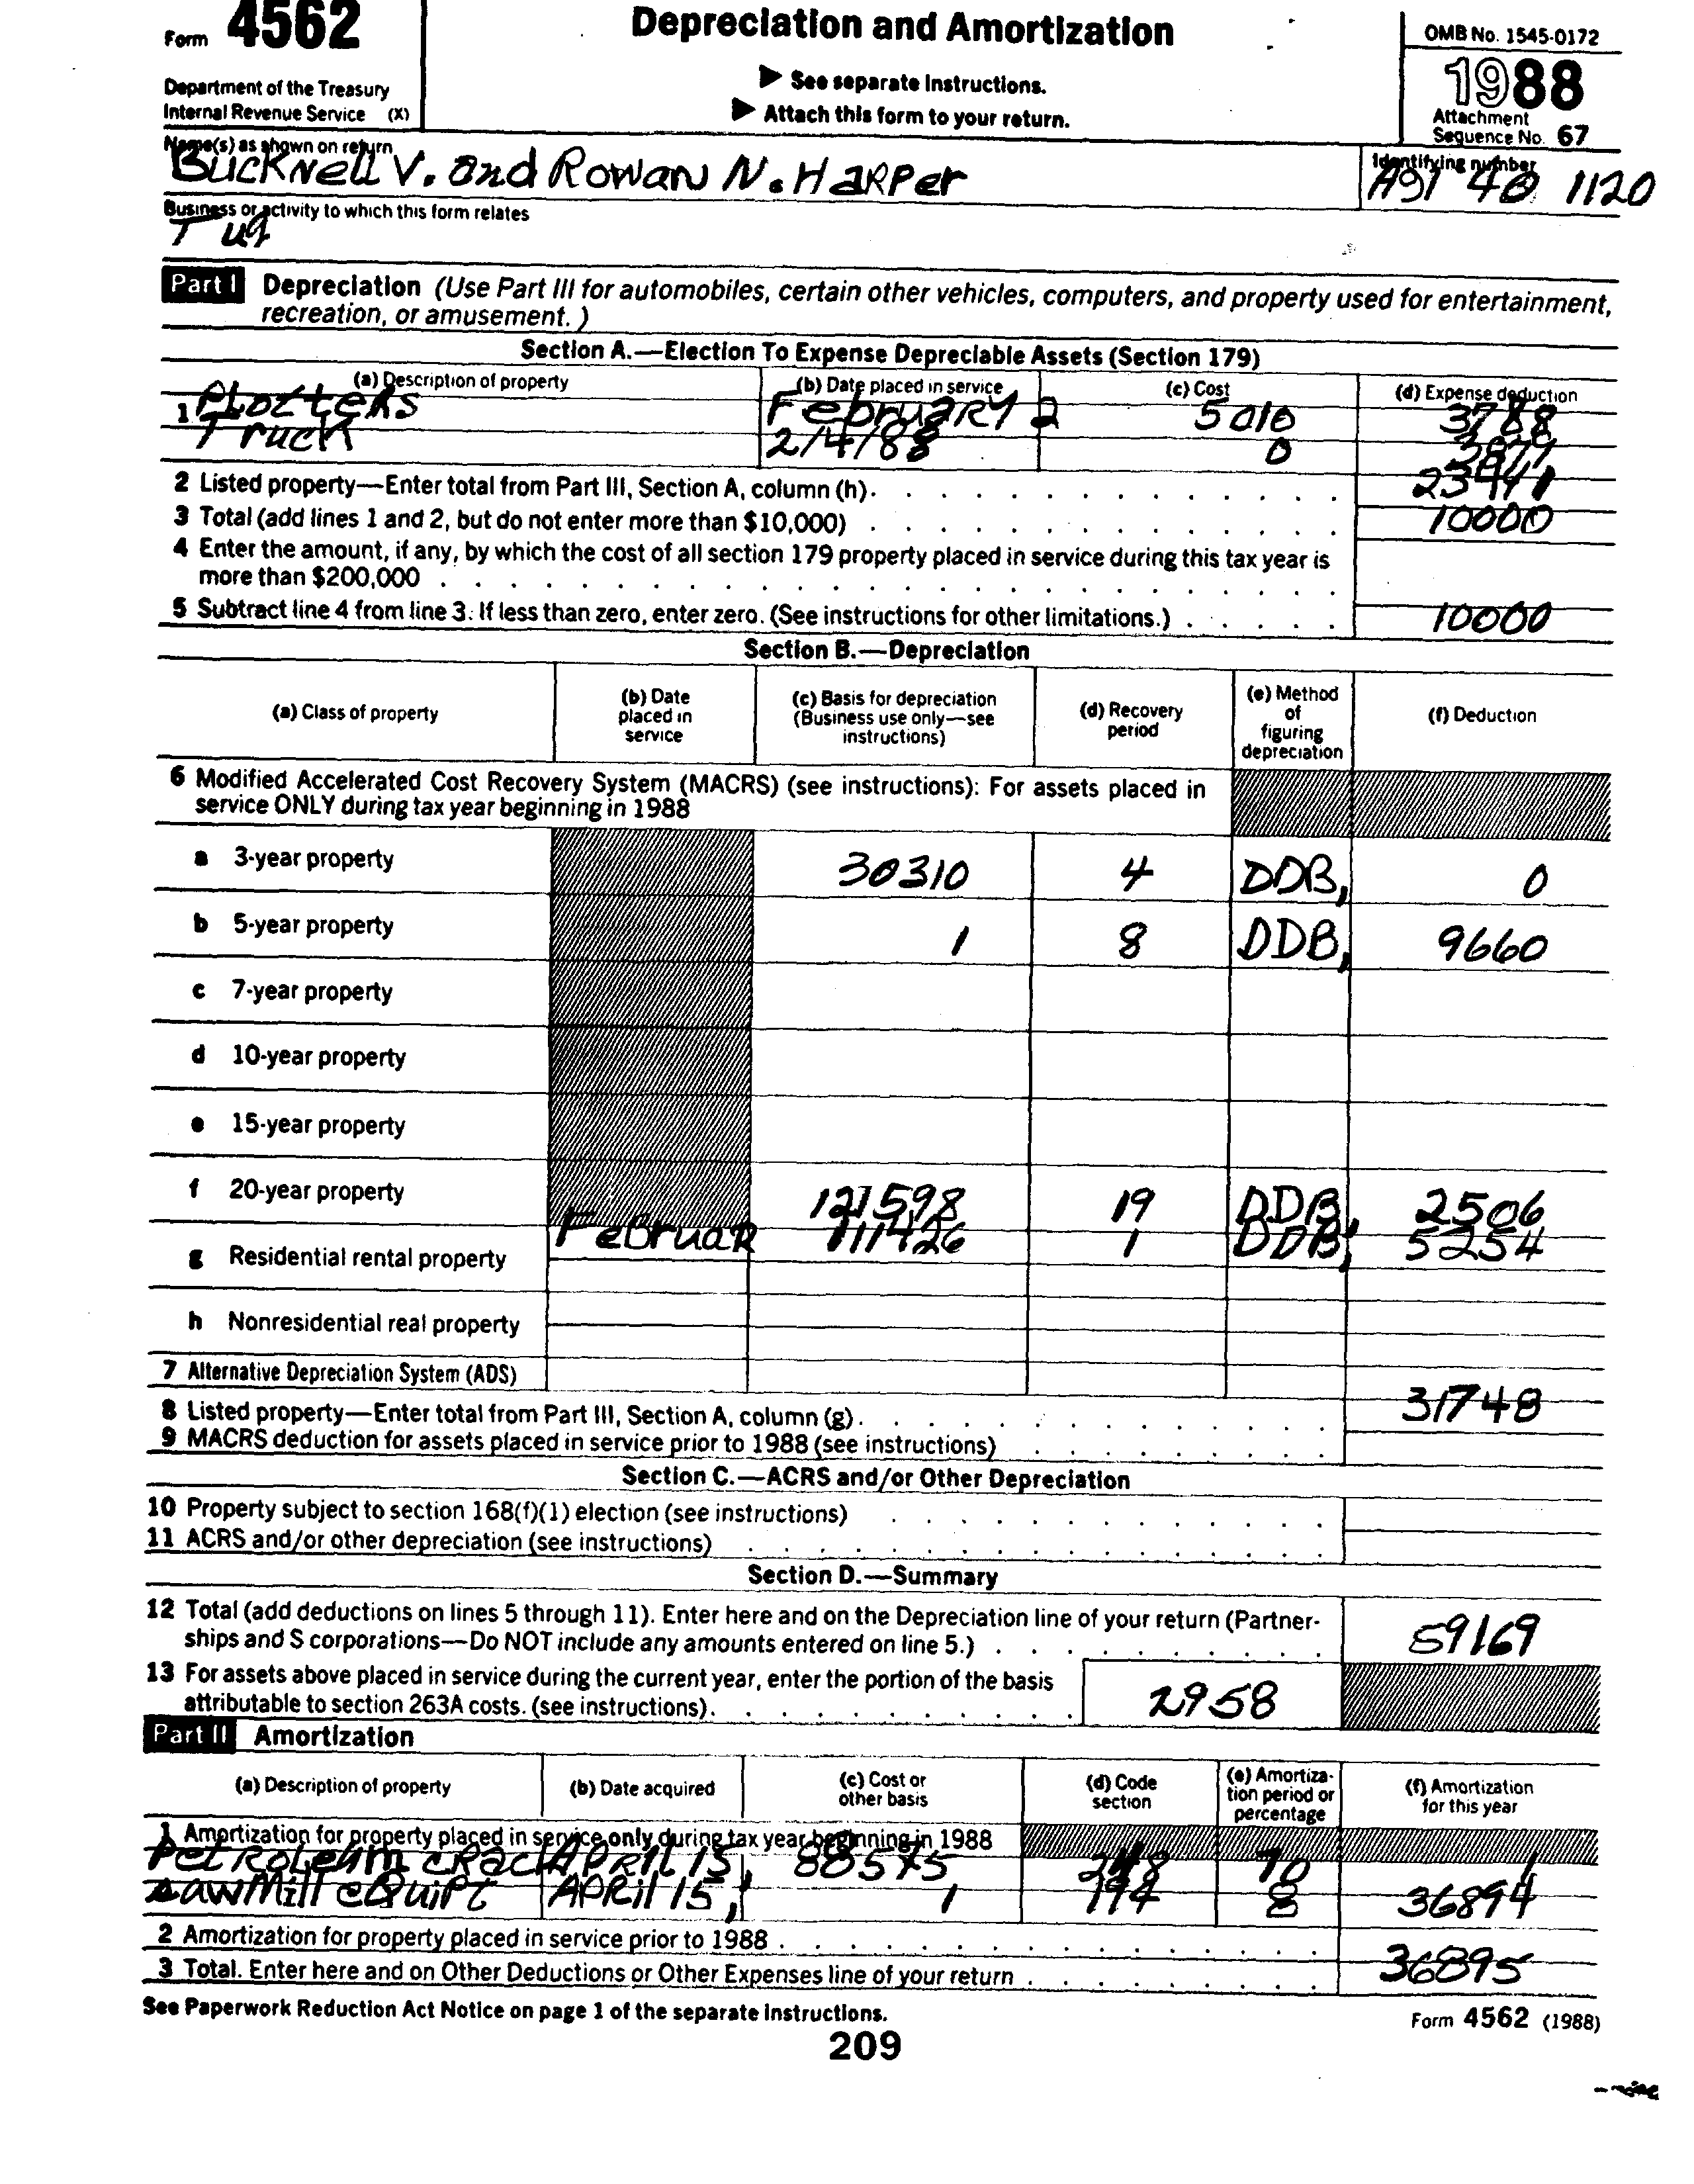 Form 4562
Depreciation and Amortization
OMB No. 1545-0172
Department of the Treasury
Internal Revenue Service (X)
▶ See separate instructions.
▶ Attach this form to your return.
1988
Attachment
Sequence No. 67
Name(s) as shown on return
Bucknell V. and Rowan N. Harper
Identifying number
40 1120
Business or activity to which this form relates
Tug
Part I Depreciation (Use Part III for automobiles, certain other vehicles, computers, and property used for entertainment,
recreation, or amusement.)
Section A.—Election To Expense Depreciable Assets (Section 179)
(a) Description of property (b) Date placed in service (c) Cost (d) Expense deduction
1 Plotters February 2 5010 3788
Truck 2/4/88 0
2 Listed property—Enter total from Part III, Section A, column (h).
3 Total (add lines 1 and 2, but do not enter more than $10,000) 10000
4 Enter the amount, if any, by which the cost of all section 179 property placed in service during this tax year is
more than $200,000
5 Subtract line 4 from line 3. If less than zero, enter zero. (See instructions for other limitations.) 10000
Section B.—Depreciation
(a) Class of property (b) Date placed in service (c) Basis for depreciation (Business use only—see instructions) (d) Recovery period (e) Method of figuring depreciation (f) Deduction
6 Modified Accelerated Cost Recovery System (MACRS) (see instructions): For assets placed in
service ONLY during tax year beginning in 1988
a 3-year property 30310 4 DDB, 0
b 5-year property 1 8 DDB, 9660
c 7-year property
d 10-year property
e 15-year property
f 20-year property 121598 19 DDB, 2506
g Residential rental property Februar 111426 1 DDB, 5254
h Nonresidential real property
7 Alternative Depreciation System (ADS)
8 Listed property—Enter total from Part III, Section A, column (g). 31748
9 MACRS deduction for assets placed in service prior to 1988 (see instructions)
Section C.—ACRS and/or Other Depreciation
10 Property subject to section 168(f)(1) election (see instructions)
11 ACRS and/or other depreciation (see instructions)
Section D.—Summary
12 Total (add deductions on lines 5 through 11). Enter here and on the Depreciation line of your return (Partner-
ships and S corporations—Do NOT include any amounts entered on line 5.) 59169
13 For assets above placed in service during the current year, enter the portion of the basis
attributable to section 263A costs. (see instructions). 2958
Part II Amortization
(a) Description of property (b) Date acquired (c) Cost or other basis (d) Code section (e) Amortization period or percentage (f) Amortization for this year
1 Amortization for property placed in service only during tax year beginning in 1988
Petroleum crac April 15, 88575 248 70 1
sawmill equipt April 15, 1 194 8 36894
2 Amortization for property placed in service prior to 1988
3 Total. Enter here and on Other Deductions or Other Expenses line of your return 36895
See Paperwork Reduction Act Notice on page 1 of the separate instructions.
Form 4562 (1988)
209